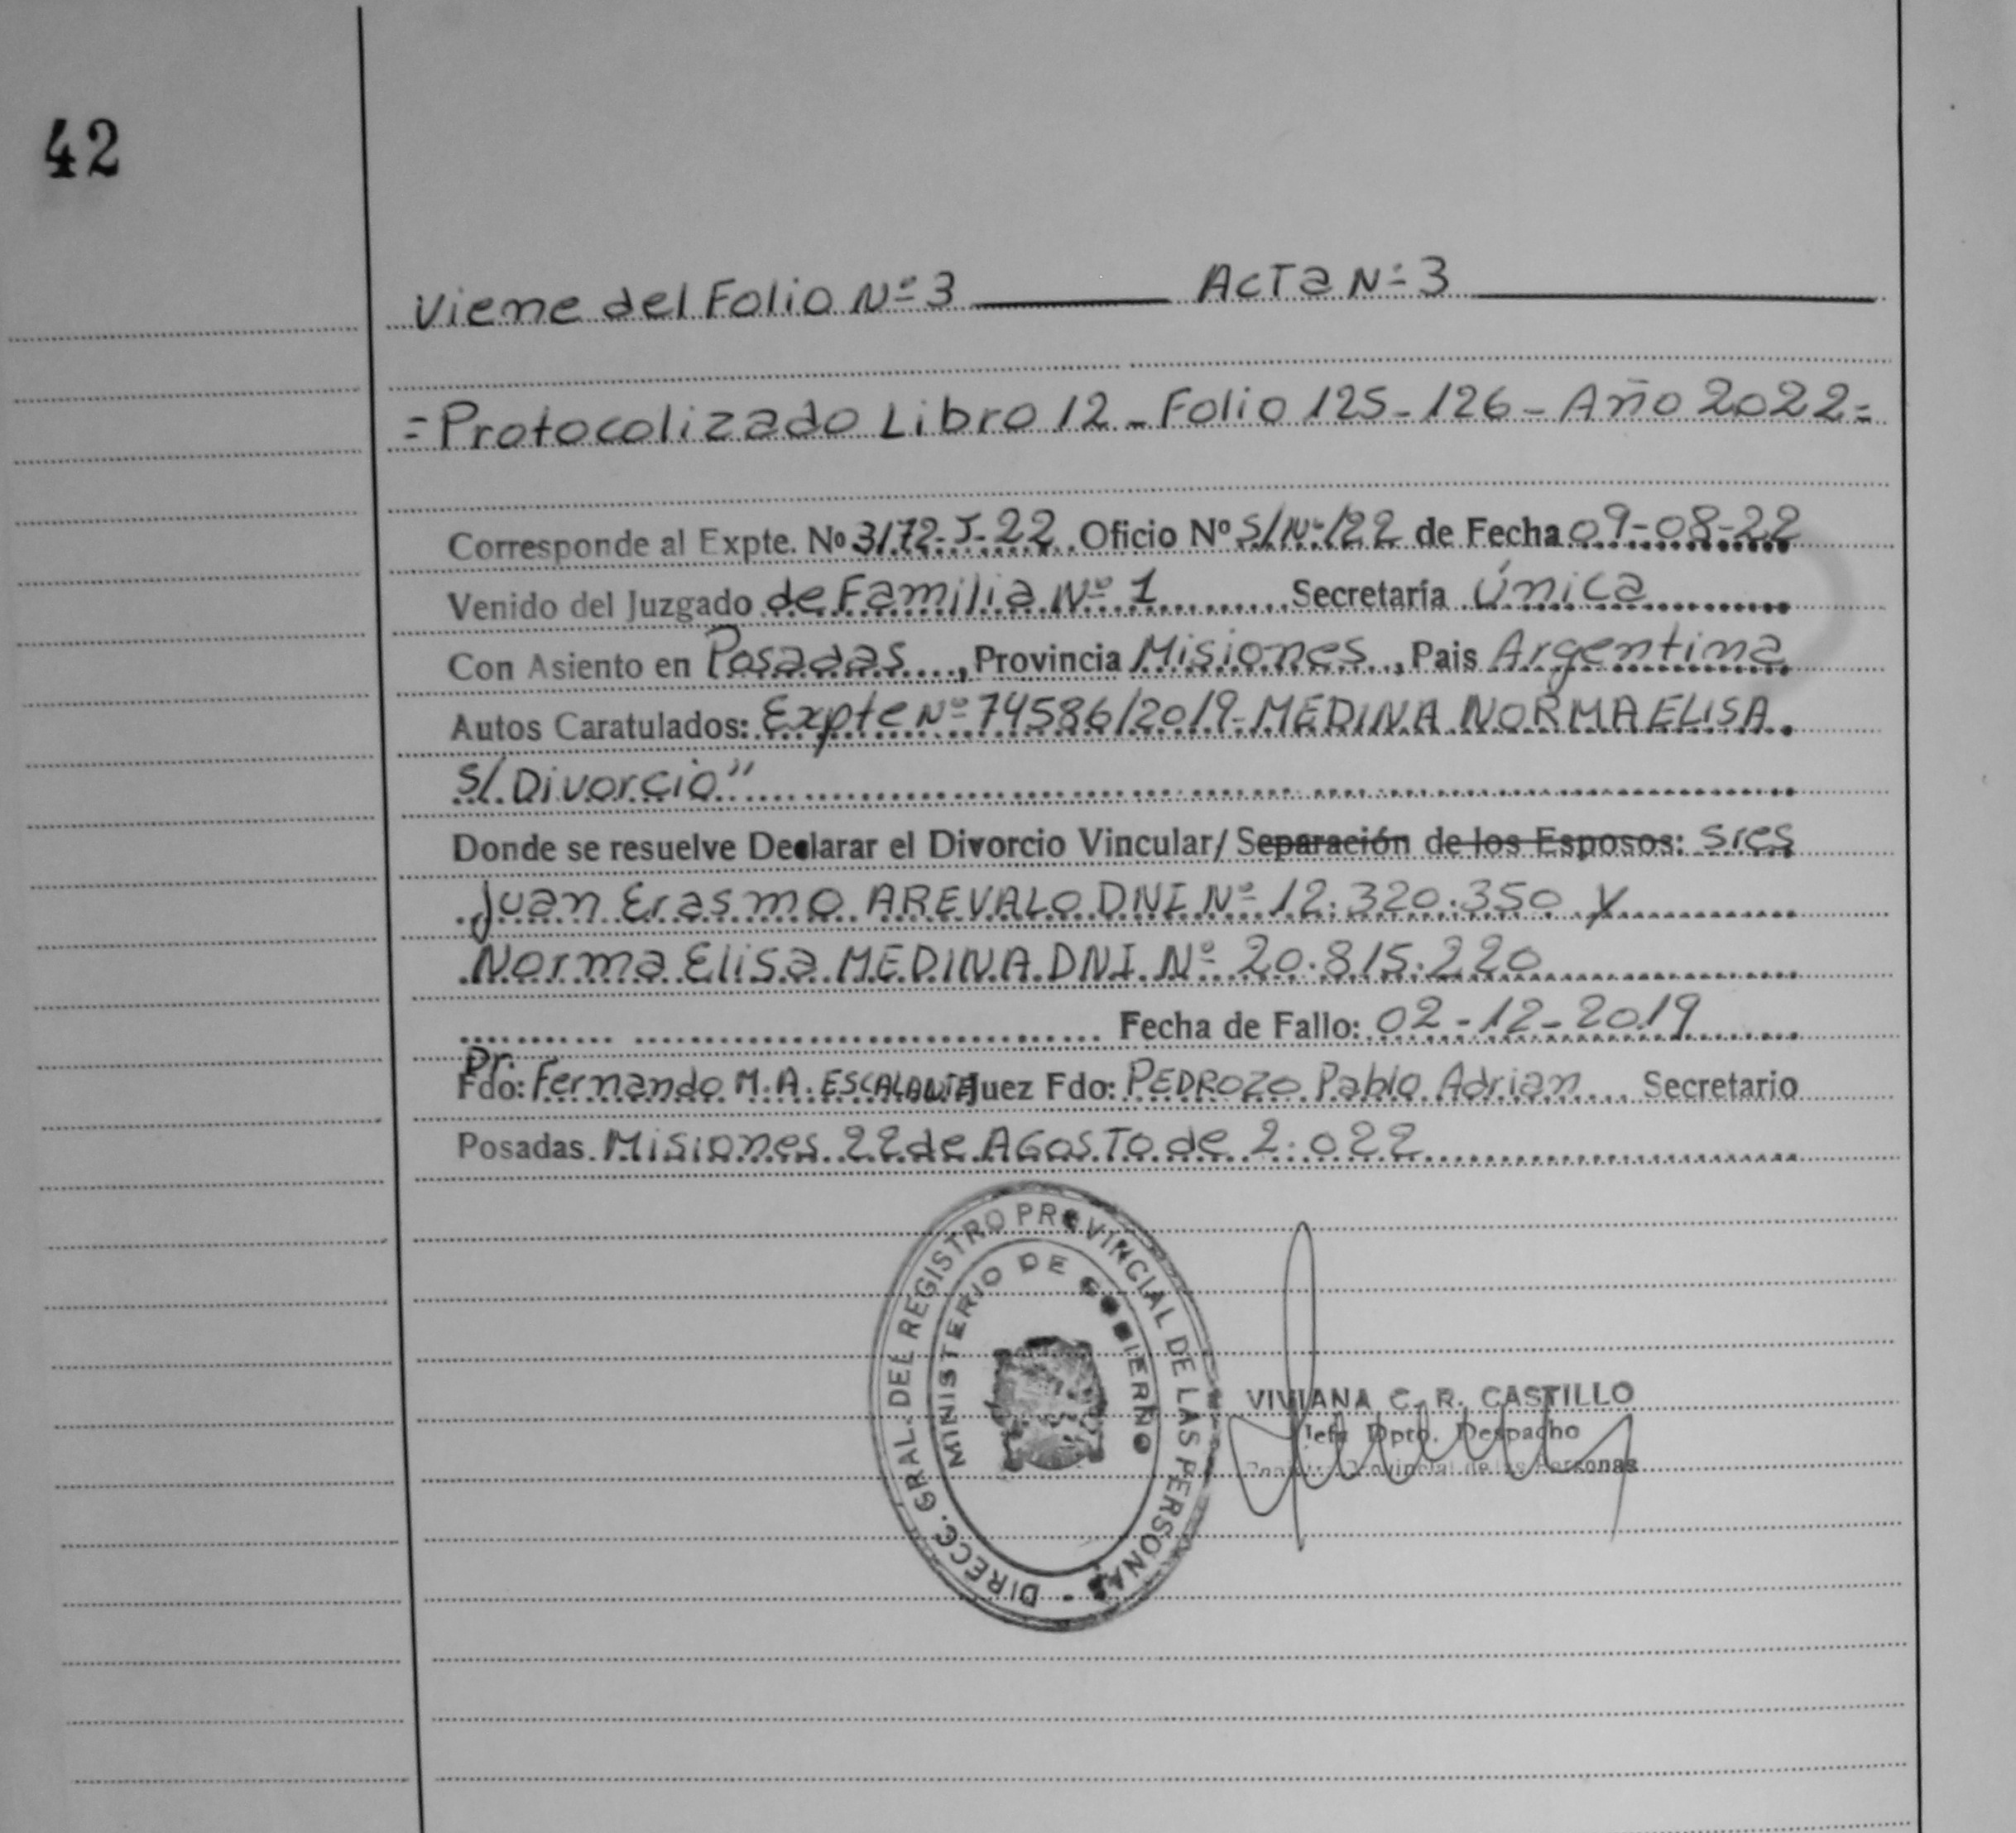 42
Viene del Folio Nº 3 ACTA Nº 3
= Protocolizado Libro 12 - Folio 125 - 126 - Año 2022 =
Corresponde al Expte. Nº 3172-J-22 Oficio Nº S/Nº/22 de Fecha 09-08-22
Venido del Juzgado de Familia Nº 1 Secretaría Única
Con Asiento en Posadas, Provincia Misiones, Pais Argentina
Autos Caratulados: Expte Nº 74586/2019 - MEDINA NORMA ELISA
S/ Divorcio"
Donde se resuelve Declarar el Divorcio Vincular/ Separación de los Esposos: sres
Juan Erasmo AREVALO DNI Nº 12.320.350 y
Norma Elisa MEDINA DNI Nº 20.815.220
Fecha de Fallo: 02-12-2019
Dr.
Fdo: Fernando M. A. ESCALANTE Juez Fdo: PEDROZO Pablo Adrian Secretario
Posadas Misiones 22 de AGOSTO de 2.022
DIRECC. GRAL. DEL REGISTRO PROVINCIAL DE LAS PERSONAS -
MINISTERIO DE GOBIERNO
VIVIANA C. R. CASTILLO
Jefa Dpto. Despacho
Provincial de las Personas